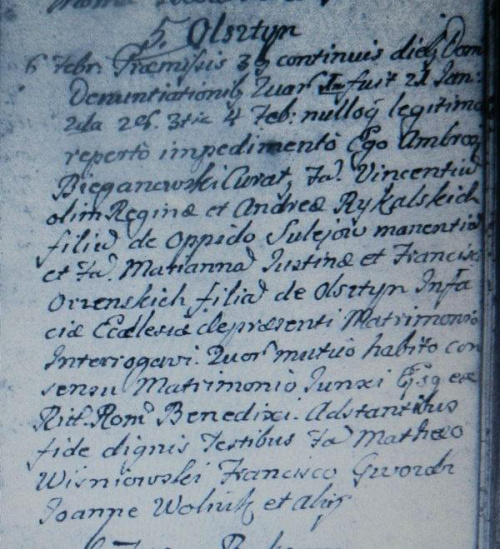 5. Olsztyn
6 Febr: Præmissis 3g continuis dieb Dom
Denuntiationib Quar Ima fuit 21 Jan:
2da 28. 3tia 4 Feb: nulloq legitimo
reperto impedimento Ego Ambroq
Bieganowski Curat, Fa. Vincentiu
olim Reginæ et Andreæ Rykalskich
filiu de oppido Sulejow manentia
et Fa. Marianna Justinæ et Francisc
Orzenskich filia de Olsztyn Infa
ciæ Ecclesiæ depræsenti Matrimonio
Interrogavi. Quor mutuo habito con
sensu Matrimonio Junxi Eosq ex
Rit. Rom Benedixi. Adstantibus
fide dignis Testibus Fa Matheo
Wisniowski Francisco Gwozdz
Joanne Wolnik et alijs